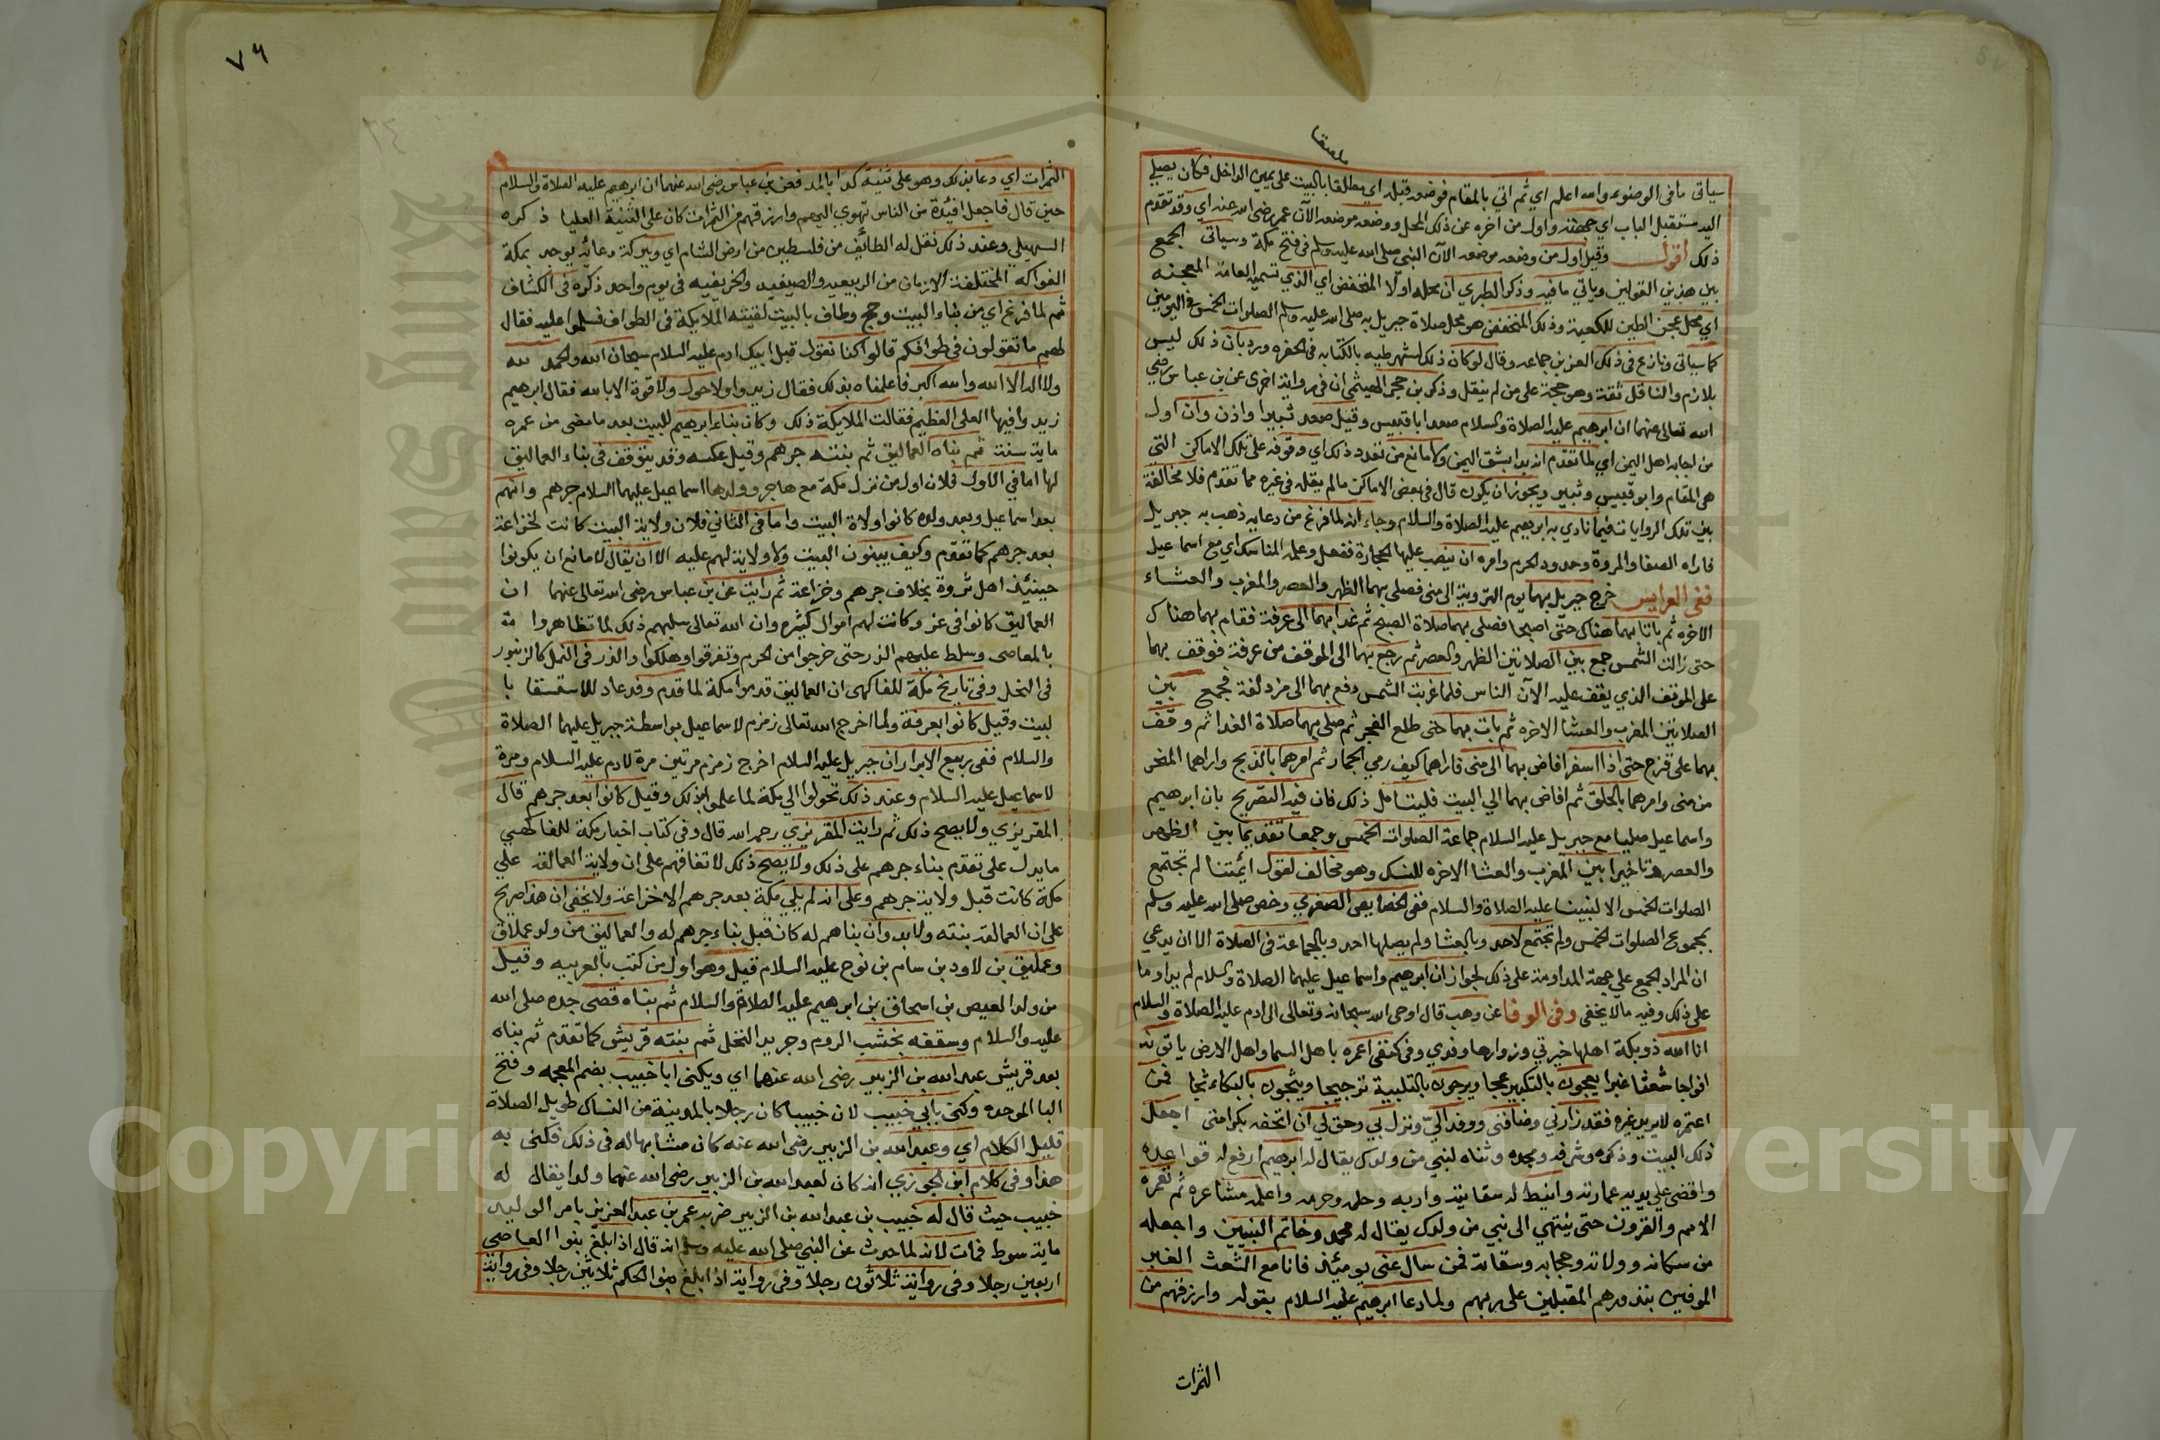 ملصقا
سياتى ما فى الوضوء والله اعلم اي ثم اتي بالمقام فوضعه قبله اي مطلقا بالبيت على يمين الداخل فكان يصلي
اليه مستقبل الباب اي جهته واول من اخره عن ذلك المحل ووضعه موضعه الآن عمر رضى الله عنه اي وقد تقدم
ذلك اقول وقيل اول من وضعه موضعه الآن النبي صلى الله عليه وسلم فى فتح مكة وسياتى الجمع
بين هذين القولين وياتي ما فيه وذكر الطبري ان محله اولا المنخفض اي الذي تسميه العامة المعجنه
اي محل عجن الطين للكعبة وذلك المنخفض هو محل صلاة جبريل به صلى الله عليه وسلم الصلوات الخمس فى اليومين
كما سياتى ونازع فى ذلك العز بن جماعه وقال لو كان ذلك لشهر عليه بالكتابه فى الحفره ورد بان ذلك ليس
بلازم والناقل ثقة وهو حجة على من لم ينقل وذكر بن حجر الهيثمى ان فى رواية اخرى عن بن عباس رضي
الله تعالى عنهما ان ابرهيم عليه الصلاة والسلام صعد ابا قبيس وقيل صعد ثبيرا واذن وان اول
من اجابه اهل اليمن اي لما تقدم انه بدا بشق اليمن ولا مانع من تعدد ذلك اي وقوفه على تلك الاماكن التي
هى المقام وابو قبيس وثبير ويجوز ان يكون قال فى بعض الاماكن ما لم يقله فى غيره مما تقدم فلا مخالفة
بين تلك الروايات فيما نادي به ابرهيم عليه الصلاة والسلام وجاء انه لما فرغ من دعايه ذهب به جبريل
فاراه الصفا والمروة وحدود الحرم وامره ان ينصب عليها الحجارة ففعل وعلمه المناسك اي مع اسماعيل
ففى العرايس خرج جبريل بهما يوم التروية الى منى فصلى بهما الظهر والعصر والمغرب والعشاء
الاخره ثم باتا بهما هناك حتى اصبحا فصلى بهما صلاة الصبح ثم غدا بهما الى عرفة فقام بهما هناك
حتى زالت الشمس جمع بين الصلاتين الظهر والعصر ثم رجع بهما الى الموقف من عرفة فوقف بهما
على الموقف الذي يقف عليه الآن الناس فلما غربت الشمس دفع بهما الى مزدلفة فجمع بين
الصلاتين المغرب والعشا الاخره ثم بات بهما حتى طلع الفجر ثم صلى بهما صلاة الغدا ثم وقف
بهما على قزح حتى اذا اسفر افاض بهما الى منى فاراهما كيف رمي الجمار ثم امرهما بالذبح واراهما المنحر
من منى وامرهما بالحلق ثم افاض بهما الي البيت فليتامل ذلك فان فيه التصريح بان ابرهيم
واسماعيل صليا مع جبريل عليه السلام جماعة الصلوات الخمس وجمعا تقديما بين الظهر
والعصر وتاخيرا بين المغرب والعشا الاخره للنسك وهو مخالف لقول ائمتنا لم تجتمع
الصلوات الخمس الا لنبينا عليه الصلاة والسلام ففى الخصايص الصغري وخص صلى الله عليه وسلم
بمجموع الصلوات الخمس ولم تجتمع لاحد وبالعشا ولم يصلها احد وبالجماعة فى الصلاة الا ان يدعي
ان المراد الجمع علي جهة المداومة على ذلك لجواز ان ابرهيم واسماعيل عليهما الصلاة والسلام لم يداوما
على ذلك وفيه ما لا يخفى وفى الوفا عن وهب قال اوحى الله سبحانه وتعالى الى ادم عليه الصلاة والسلام
انا الله ذو بكة اهلها خيرتي وزوارها وفدي وفى كنفى اعمره باهل السما واهل الارض ياتونه
افواجا شعثا غبرا يعجون بالتكبير عجا ويرجون بالتلبية ترجيجا ويثجون بالبكاء ثجا فمن
اعتمره لا يريد غيره فقد زارني وضافنى ووفد الي ونزل بي وحق لي ان اتحفه بكرامتى اجعل
ذلك البيت وذكره وشرفه ومجده وثناه لنبي من ولدك يقال له ابرهيم ارفع له قواعده
واقضي علي يديه عمارته وانبط له سقايته واريه وحله وحرمه واعلمه مشاعره ثم تعمره
الامم والقرون حتى ينتهي الى نبي من ولدك يقال له محمد وخاتم النبيين واجعله
من سكانه وولاته وحجابه وسقاته فمن سال عنى يومئذ فانا مع الشعث الغبر
الموفين بنذورهم المقبلين على ربهم ولما دعا ابرهيم عليه السلام بقوله وارزقهم من
الثمرات
٧٦
الثمرات اي دعا بذلك وهو على ثنية كدا بالمد فعن بن عباس رضى الله عنهما ان ابرهيم عليه الصلاة والسلام
حين قال فاجعل افئدة من الناس تهوي اليهم وارزقهم من الثمرات كان على الثنية العليا ذكره
السهيلي وعند ذلك نقل له الطائف من فلسطين من ارض الشام اي وببركة دعائه يوجد بمكة
الفواكه المختلفة الازمان من الربيعيه والصيفيه والخريفيه فى يوم واحد ذكره فى الكشاف
ثم لما فرغ اي من بناء البيت وحج وطاف بالبيت لقيته الملايكة فى الطواف فسلموا عليه فقال
لهم ما تقولون فى طوافكم قالوا كنا نقول قبل ابيك ادم عليه السلام سبحان الله والحمد لله
ولا اله الا الله والله اكبر فاعلمناه بذلك فقال زيدوا ولا حول ولا قوة الا بالله فقال ابرهيم
زيدوا فيها العلى العظيم فقالت الملايكة ذلك وكان بناء ابرهيم للبيت بعد ما مضى من عمره
ماية سنة ثم بناه العماليق ثم بنته جرهم وقيل عكسه وقد يتوقف فى بناء العماليق
لها اما في الاول فلان اول من نزل مكة مع هاجر وولدها اسماعيل عليهما السلام جرهم وانهم
بعد اسماعيل وبعد ولده كانوا ولاة البيت واما فى الثاني فلان ولاية البيت كانت لخزاعة
بعد جرهم كما تقدم وكيف يبنون البيت ولا ولاية لهم عليه الا ان يقال لا مانع ان يكونوا
حينئذ اهل ثروة بخلاف جرهم وخزاعة ثم رايت عن بن عباس رضى الله تعالى عنهما ان
العماليق كانوا فى عز وكانت لهم اموال كثيره وان الله تعالى سلبهم ذلك لما تظاهروا
بالمعاصى وسلط عليهم الذر حتى خرجوا من الحرم وتفرقوا وهلكوا والذر فى النمل كالزنبور
فى النحل وفى تاريخ مكة للفاكهى ان العماليق قدموا مكة لما قدم وفد عاد للاستسقا با
لبيت وقيل كانوا بعرفة ولما اخرج الله تعالى زمزم لاسماعيل بواسطة جبريل عليهما الصلاة
والسلام ففى ربيع الابرار ان جبريل عليه السلام اخرج زمزم مرتين مرة لادم عليه السلام ومرة
لاسماعيل عليه السلام وعند ذلك تحولوا الي مكة لما علموا بذلك وقيل كانوا بعد جرهم قال
المقريزي ولا يصح ذلك ثم رايت المقريزي رحمه الله قال وفى كتاب اخبار مكة للفاكهي
ما يدل على تقدم بناء جرهم على ذلك ولا يصح ذلك لاتفاقهم على ان ولاية العمالقه علي
مكة كانت قبل ولاية جرهم وعلى انه لم يلي مكة بعد جرهم الا خزاعة ولا يخفى ان هذا صريح
على ان العمالقه بنته ولابد وان بناهم له كان قبل بناء جرهم له والعماليق من ولد عملاق
وعمليق بن لاود بن سام بن نوح عليه السلام قيل وهو اول من كتب بالعربيه وقيل
من ولد العيص بن اسحاق بن ابرهيم عليه الصلاة والسلام ثم بناه قصى جده صلى الله
عليه والسلام وسقفه بخشب الدوم وجريد النخل ثم بنته قريش كما تقدم ثم بناه
بعد قريش عبد الله بن الزبير رضى الله عنهما اي ويكنى ابا خبيب بضم المعجمه وفتح
البا الموحده وكنى بابي خبيب لان خبيبا كان رجلا بالمدينة من النساك طويل الصلاة
قليل الكلام اي وعبد الله بن الزبير رضى الله عنه كان مشابها له فى ذلك فكنى به
هذا وفى كلام ابن الجوزي انه كان لعبد الله بن الزبير رضى الله عنهما ولد يقال له
خبيب حيث قال له خبيب بن عبد الله بن الزبير ضربه عمر بن عبد العزيز بامر الوليد
ماية سوط فمات لانه لما حدث عن النبي صلى الله عليه وسلم انه قال اذا بلغ بنوا العاصي
اربعين رجلا وفى رواية ثلاثون رجلا وفى رواية اذا بلغ بنو الحكم ثلاثين رجلا وفى رواية
Copyright © King Saud University